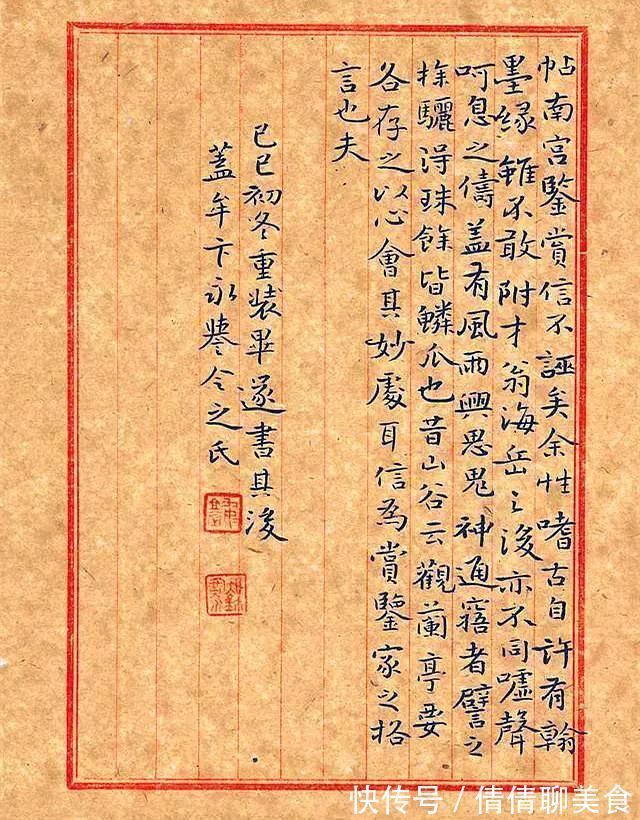 帖南宮鑒賞信不誣矣余性嗜古自許有翰
墨緣雖不敢附才翁海岳〻後亦不同嘘聲
呵息之儔蓋有風雨興思鬼神通寤者譬之
探驪得珠餘皆鱗爪也昔山谷云觀蘭亭要
各存之以心會其妙處耳信為賞鑒家之格
言也夫
己巳初冬重裝畢遂書其後
蓋牟卞永譽令之氏
快传号/倩倩聊美食